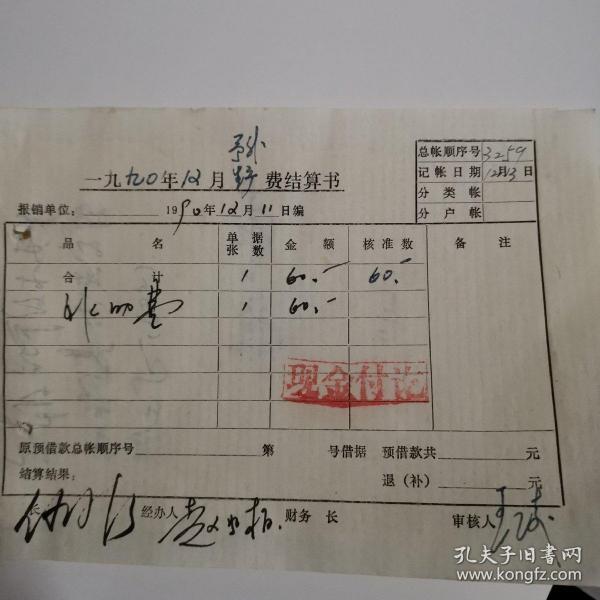 总帐顺序号 3259
一九九0年12月 费结算书
记帐日期 12月13日
分类帐
报销单位： 1990年12月11日编
分户帐
品名 单据张数 金额 核准数 备注
合计 1 60.- 60.-
费 1 60.-
现金付讫
原预借款总帐顺序号 第 号借据 预借款共 元
结算结果： 退（补） 元
长 经办人 财务长 审核人
孔夫子旧书网
www.kongfz.com